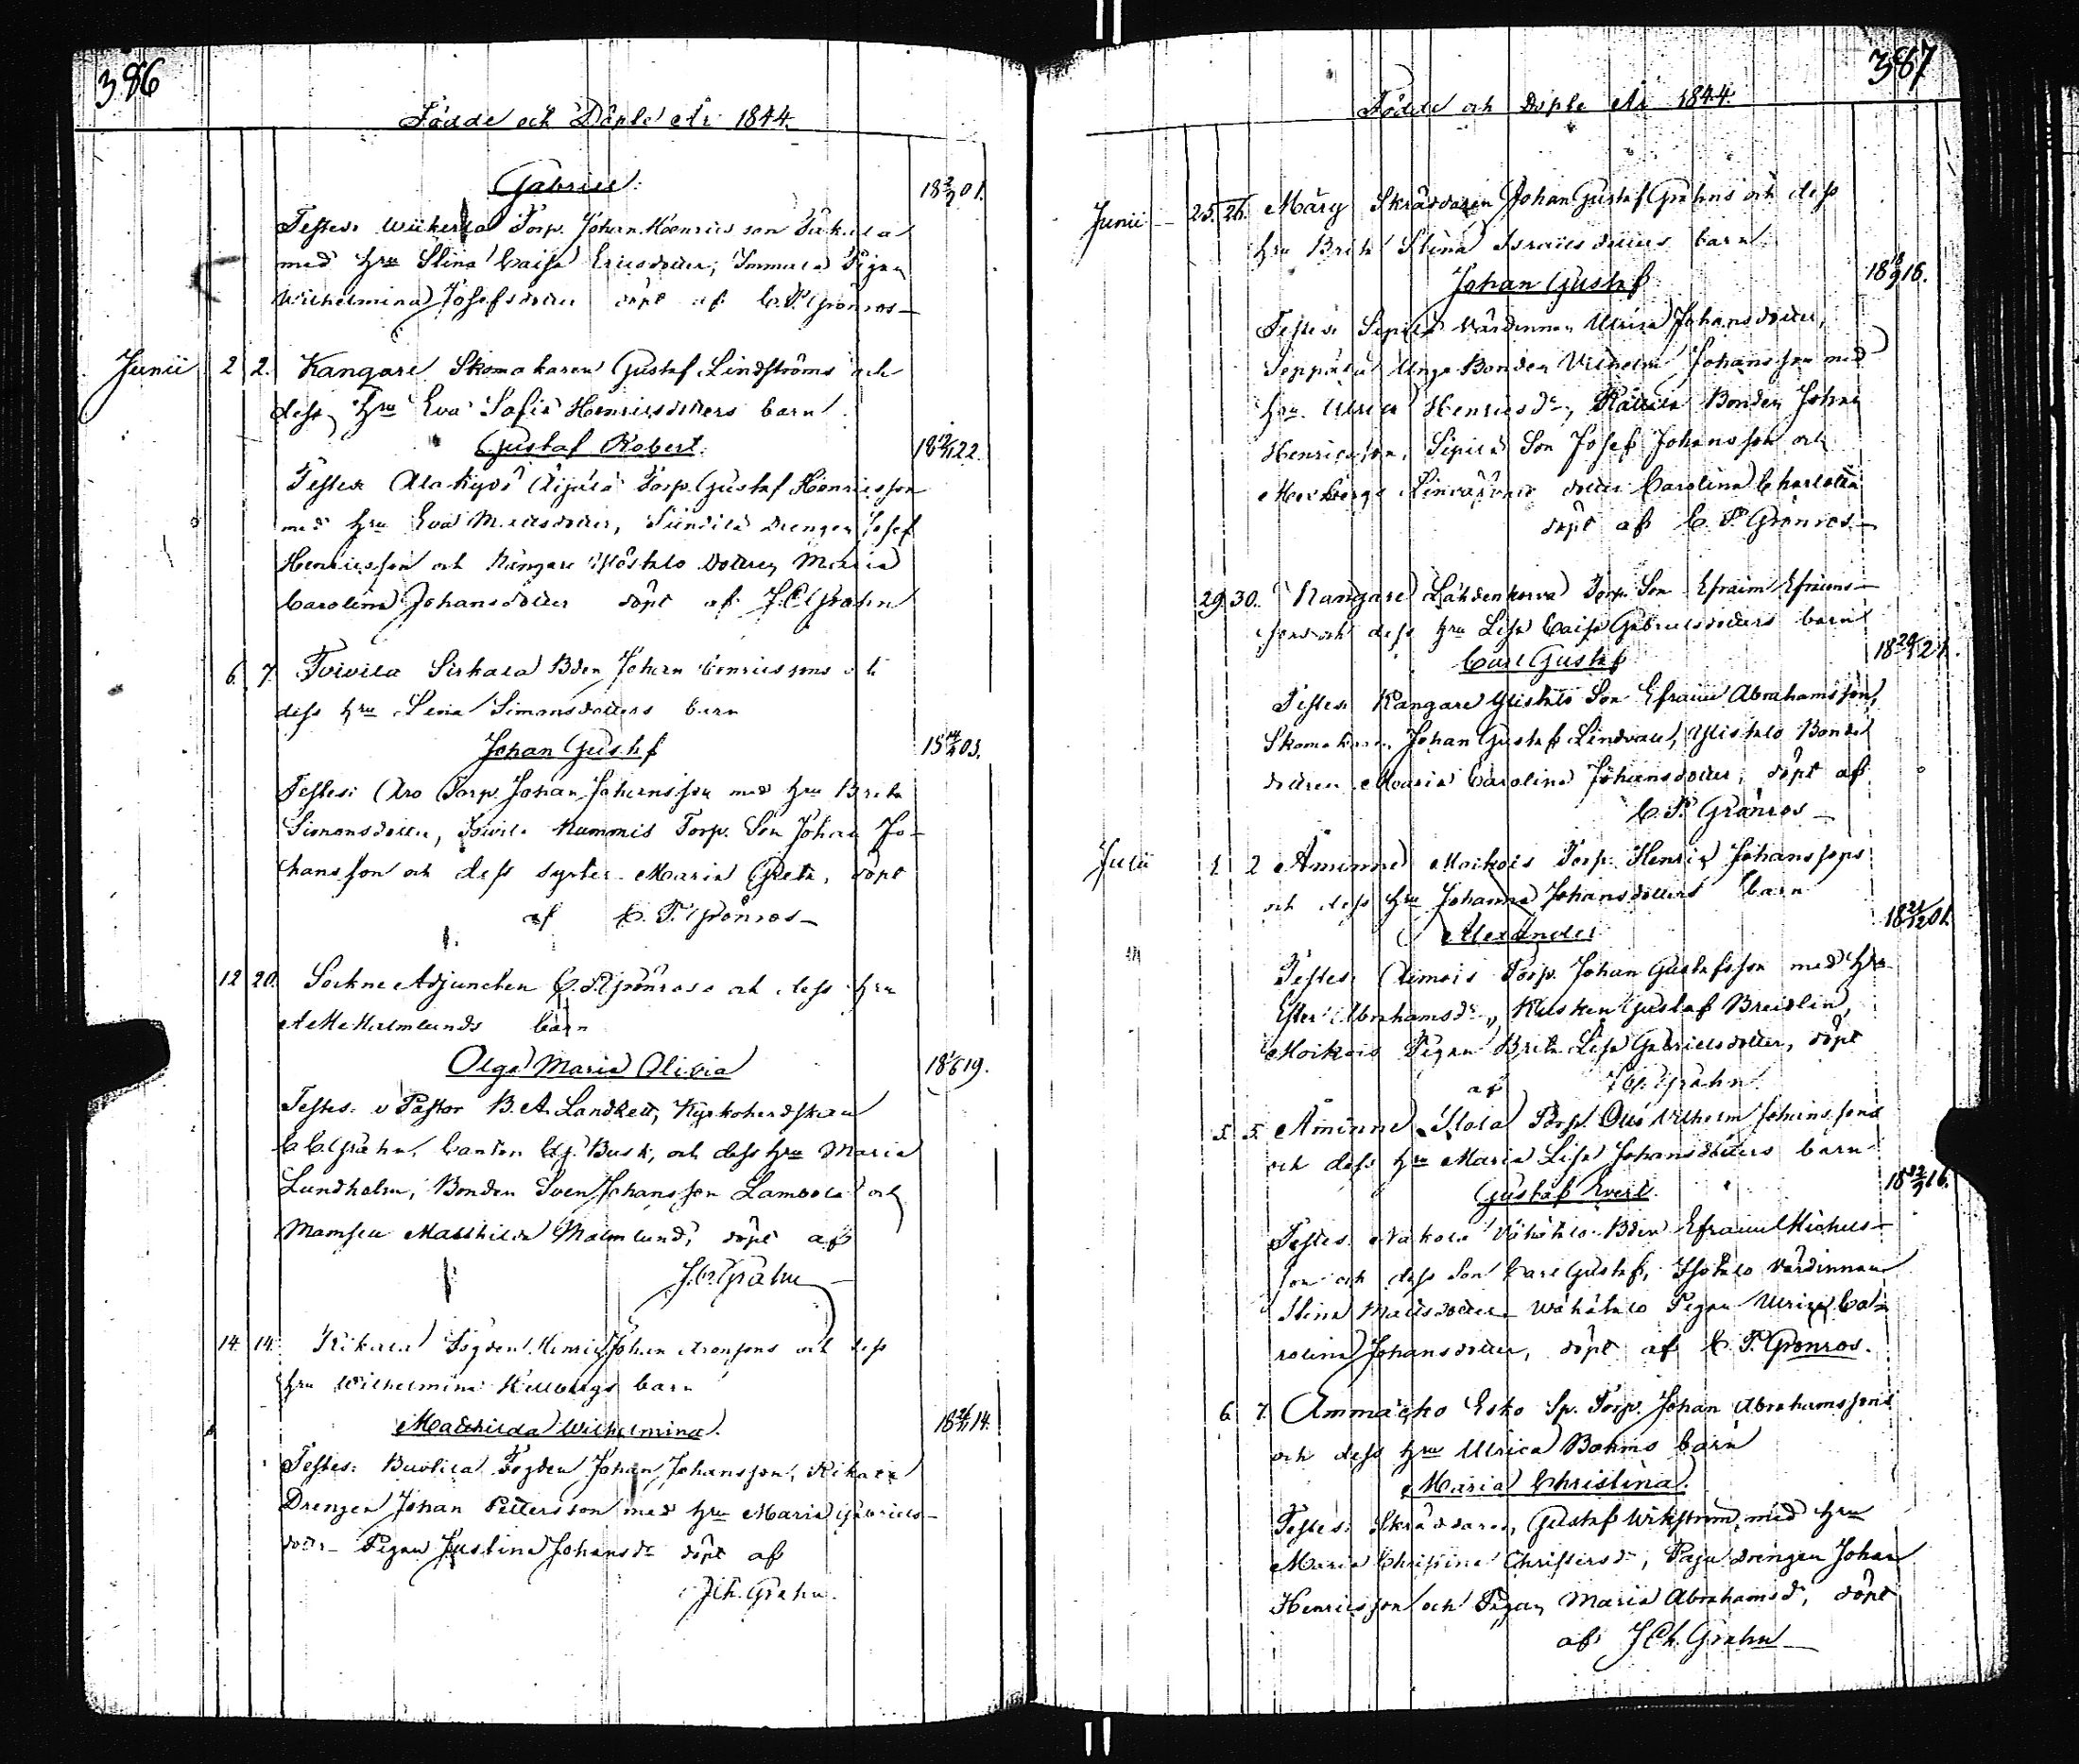 386
Födde och Döpte År 1844.
Gabriel.
18 2/9 01.
Testes: Torp. Johan Henricsson
med Hru Stina Caisa Ericsdotter, Pigan
Wilhelmina Josefsdotter döpt af C. F. Grönros
Junii 2 2. Kangare Skomakaren Gustaf Lindströms och
dess Hru Eva Sofia Henricsdotters barn
Gustaf Robert.
18 12/11 22.
Testes Äijälä Torp. Gustaf Henricsson
med Hru Eva Mattsdotter, drengen Josef
Henricsson och Kangare Dottren Maria
Carolina Johansdotter döpt af J. C. Grahn
6. 7. Toivila Sirkala Bden Johan Henricssons och
dess Hru Lena Simonsdotters barn
Johan Gustaf
18 03.
Testes: Aro Torp. Johan Johansson med Hru Brita
Simonsdotter, Toivila Nummis Torp. Son Johan Jo-
hansson och dess syster Maria Greta, döpt
af C. F. Grönros
12 20. Sockne Adjuncten C. F. Grönroos och dess Hru
A M Malmlunds barn
Olga Maria Olivia
18 1/6 19.
Testes: v Pastor B. A. Landzett, Kyrkoherdskan
C C Grahn, Cantor Busk, och dess Hru Maria
Lundholm, Bonden Sven Johansson Lambola och
Mamsell Matthilda Malmlund, döpt af
J. C. Grahn
14. 14. Rikala Fogden Henric Johan Aronsons och dess
Hru Wilhelmina Hellbergs barn
Mathilda Wilhelmina.
18 26/11 14.
Testes: Fogden Johan Johansson, Rikala
Drengen Johan Pettersson med Hru Maria Gabriels-
dotter Pigan Justina Johansdr döpt af
J Ch. Grahn.
387
Födde och Döpte År 1844.
Junii 25. 26. Märy Skräddaren Johan Gustaf Grahns och dess
Hru Brita Stina Israelsdotters barn
Johan Gustaf
18 18/9 16.
Testes: Sipilä Värdinnan Ulrica Johansdotter,
Seppälä Unge Bonden Vilhelm Johansson med
Hru Ulrica Henricsdr, Bonden Johan
Henricsson, Sipilä Son Josef Johansson och
dotter Carolina Charlotta
döpt af C. F. Grönros
29. 30. Kangare Lähdenkorva Torp. Son Efraim Efraims-
sons och dess Hru Lisa Caisa Gabrielsdotters barn
Carl Gustaf
18 21.
Testes: Kangare Son Efraim Abrahamsson,
Skomakaren Johan Gustaf Lindvall, Bonde
dottren Maria Carolina Johansdotter, döpt af
C. F. Grönros
Julii 1 2 Åminne Moikois Torp. Henric Johanssons
och dess Hru Johanna Johansdotters barn
Alexander
18 21/12 01.
Testes: Torp. Johan Gustafsson med Hru
Ester Abrahamsdr, Kusken Gustaf Breidlin,
Moikois Pigan Brita Lisa Gabrielsdotter, döpt
af Grahn
5. 5. Åminne Torp. Otto Vilhelm Johanssons
och dess Hru Maria Lisa Johansdotters barn
Gustaf Evert.
18 12/9 16.
Testes: Bden Efraim Michels-
son och dess Son Carl Gustaf, Isotalo Värdinnan
Stina Mattsdotter Pigan Ulrica Ca-
rolina Johansdotter, döpt af C. F. Grönros.
6. 7. Ammäcko Esko Sp. Torp. Johan Abrahamssons
och dess Hru Ulrica Bohms barn
Maria Christina.
Testes: Skräddaren, Gustaf Wikström, med Hru
Maria Christina Christersdr, Paju drengen Johan
Henricsson och Pigan Maria Abrahamsdr, döpt
af J Ch. Grahn